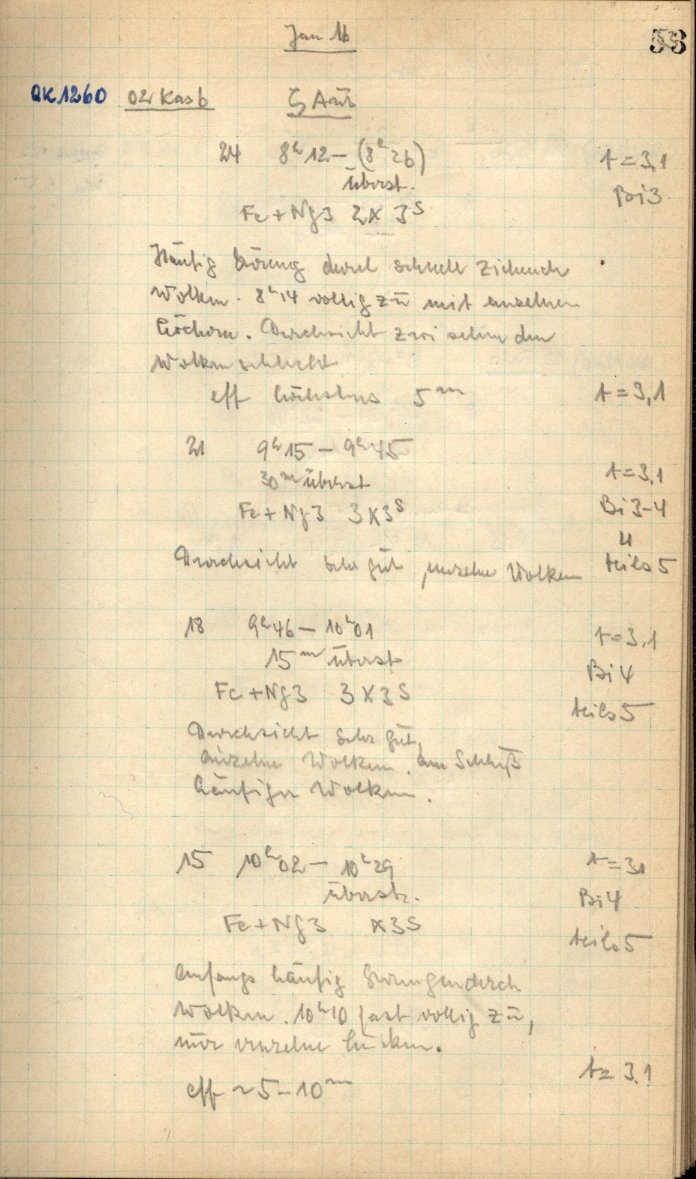 Jan 16
53
QK1260 02r Kas b ζ Aur
24 8h12 – (8h26) t = 3,1
überst. Bi 3
Fe + Ng3 2 x 3s
Häufig Störung durch schnell ziehende
Wolken. 8h14 vollig zu mit einzelnen
Löchern. Durchsicht zwischen den
Wolken schlecht
eff höchstens 5m t = 3,1
21 9h15 – 9h45
30m überst t = 3,1
Fe + Ng3 3 x 3s Bi 3-4
4
Durchsicht sehr gut, einzelne Wolken teils 5
18 9h46 – 10h01 t = 3,1
15m überst Bi 4
Fe + Ng3 3 x 3s
teils 5
Durchsicht sehr gut,
einzelne Wolken. am Schluß
häufiger Wolken.
15 10h02 – 10h29 t = 3,1
überst. Bi 4
Fe + Ng3 x 3s
teils 5
Anfangs häufig Störungen durch
Wolken. 10h10 fast vollig zu,
nur einzelne Lücken.
t = 3.1
eff ~ 5 – 10m